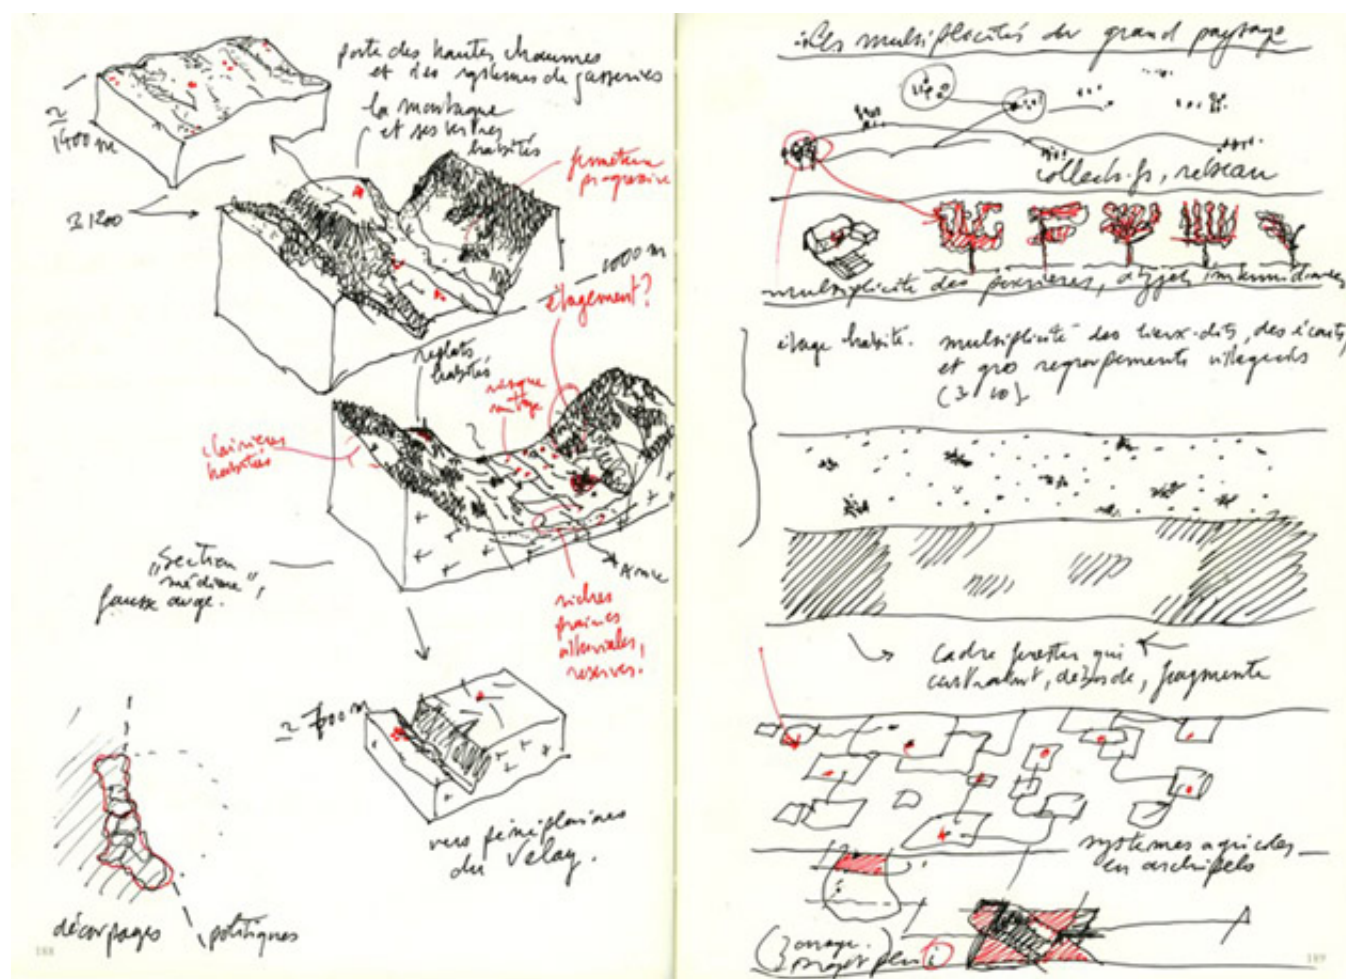 porte des hautes chaumes
et des systemes de jasseries
≃
1400 m
la montagne
et ses tertres
habités
fermeture
progressive
≃ 1200
1000 m
étagement ?
replats
habités
mitage
clairières
habitées
"Section
médiane",
fausse auge.
riches
plaines
alluviales,
reserves.
≃ 700 m
vers pénéplaines
du Velay.
découpages
politiques
188
Les multiplicités du grand paysage
collectifs, réseau
multiplicité des lisières, objets intermédiaires
étage habité.
multiplicité des lieux-dits, des écarts,
et gros regroupements villageois
cadre forestier qui
déborde, fragmente
systemes agricoles
en archipels
189